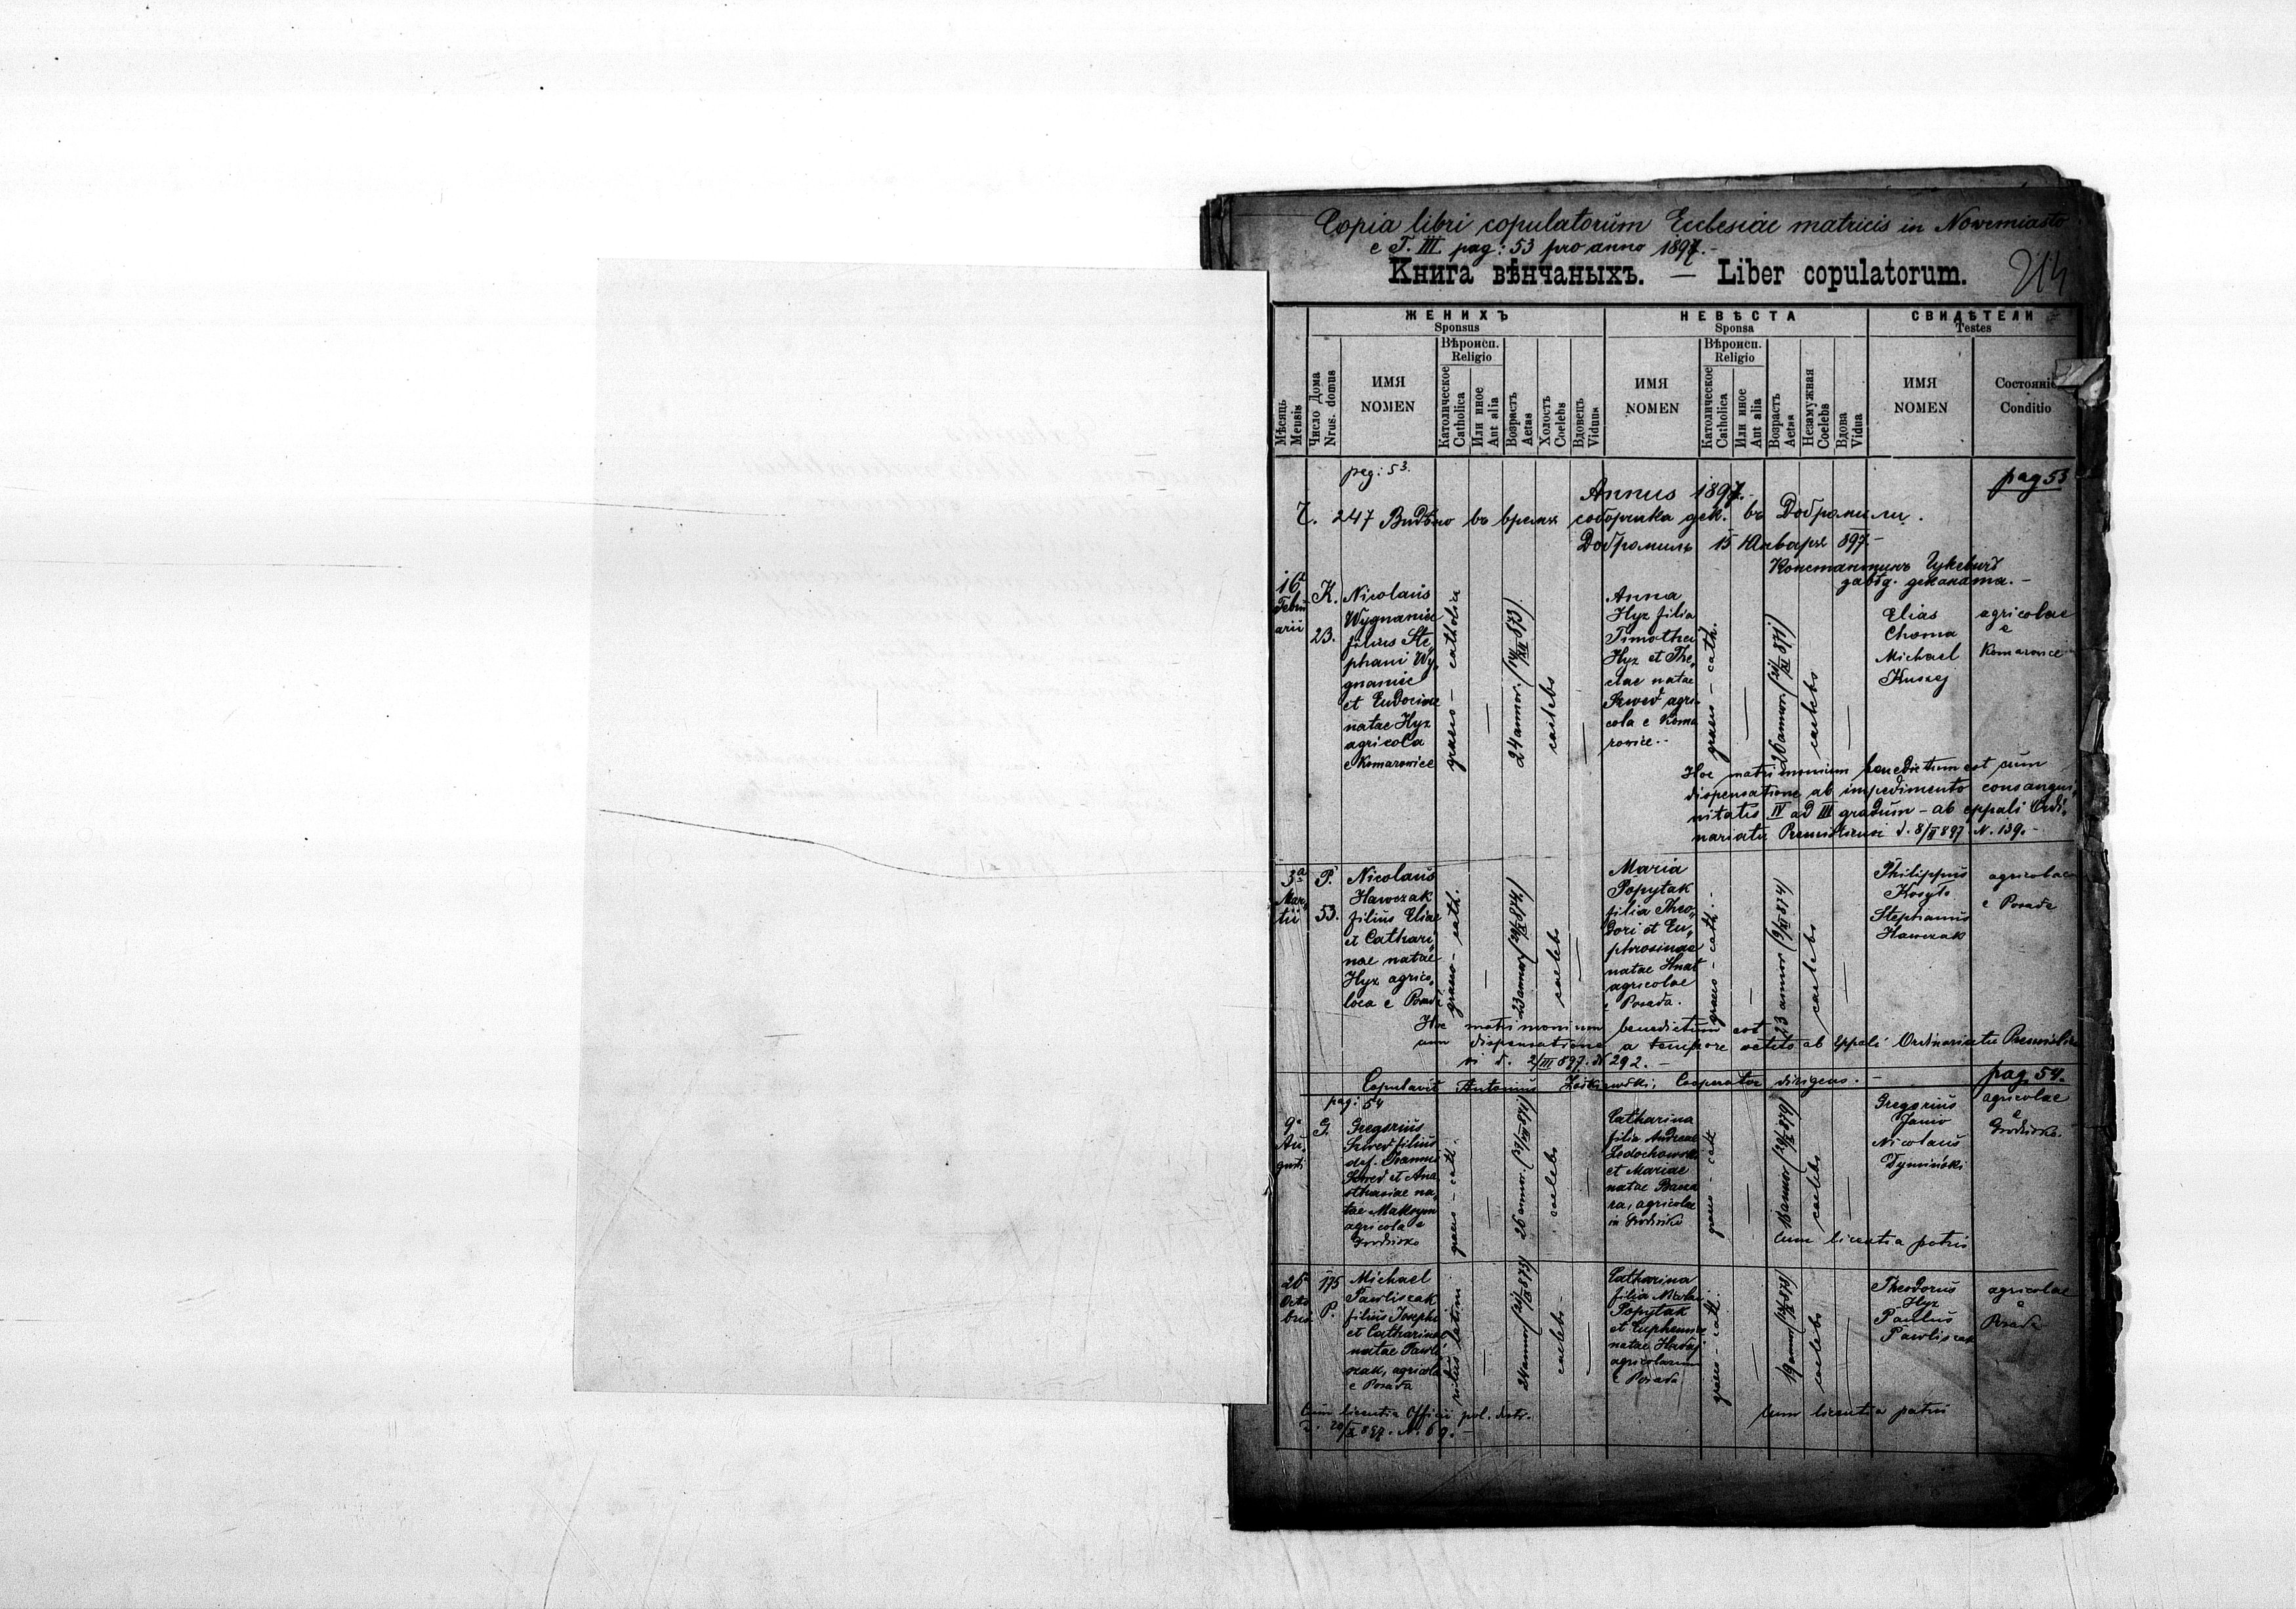 Copia libri copulatorum Ecclesiae matricis in Novemiasto
e T. III. pag: 53 pro anno 1897.-
Книга вѣнчаныхъ. — Liber copulatorum.
214
ЖЕНИХЪ
Sponsus
НЕВѢСТА
Sponsa
СВИДѢТЕЛИ
Testes
Мѣсяць
Mensis
Число Дома
Nrus. domus
ИМЯ
NOMEN
Вѣроисп.
Religio
Католическое
Catholica
Или иное
Aut alia
Возрастъ
Aetas
Холостъ
Coelebs
Вдовець
Viduus
ИМЯ
NOMEN
Вѣроисп.
Religio
Католическое
Catholica
Или иное
Aut alia
Возрастъ
Aetas
Незамужная
Coelebs
Вдова
Vidua
ИМЯ
NOMEN
Состояніе
Conditio
pag: 53.
pag 53
Annus 1897.-
Ч. 247 Видѣно въ время соборчика дек. въ Добромили.
Добромиль 15 Январѧ 897.-
Константинъ
завѣд. деканата.-
16a
Febru
arii
K.
23.
Nicolaus
Wygnaniec
filius Ste„
phani Wy„
gnaniec
et Eudociae
natae Hyz
agricola
e Komarowice
graeco - catholica
24 annor.
caelebs
Anna
Hyz filia
Timothei
Hyz et The„
clae natae
Szwed agri-
cola e Koma
rowice.-
graeco - cath.
26 annor.
caelebs
Elias
Choma
Michael
Kuszej
agricolae
e
Komarowice
Hoc matrimonium benedictum est cum
dispensatione ab impedimento consangui„
nitatis IV ad III gradum - ab eppali Ordi„
nariatu Premisliensi d. 8/II 897 N. 139.-
3a
Mar„
tii
P.
53.
Nicolaus
Hawczak
filius Eliae
et Cathari„
nae natae
Hyz agrico„
lae e Posada
graeco - cath.
23 annor
caelebs
Maria
Popytak
filia Theo„
dori et Eu„
phrosinae
natae Hnat
agricolae
e Posada.
graeco - cath.-
23 annor
caelebs
Philippus
Kosylo
Stephanus
Hawczak
agricolae
e Posada
Hoc matrimonium benedictum est
cum dispensatione a tempore vetito ab Eppali Ordinariatu Premislien
si d. 2/III 897. N 292.-
Copulavit Antonius Cooperator dirigens.-
pag. 54.
pag: 54
9a
Au„
gusti
G.
Gregorius
Szwed filius
def. Joannis
Szwed et Ana
sthasiae na„
tae Maksym
agricola e
Grodzisko
graeco - cath.
26 annor.
caelebs
Catharina
filia Andreae
et Mariae
natae
agricolae
in Grodzisko
graeco - cath
18 annor
caelebs
Cum licentia patris
Gregorius
Janio
Nicolaus
Dyminski
agricolae
e
Grodzisko.
26a
Octo
bris
175
P.
Michael
Pawliszak
filius Josephi
et Catharinae
natae Pawli
szak, agricola
e Posada
ritus latini
24 annor
caelebs
Catharina
filia Nicolai
Popytak
et Euphemiae
natae
agricolarum
e Posada
graeco - cath.
19 annor
caelebs
Theodorus
Hyz
Paulus
Pawliszak
agricolae
e
Posada
Cum licentia Officii pol. distr.
d. 20/X 897. N. 69.-
Cum licentia patris